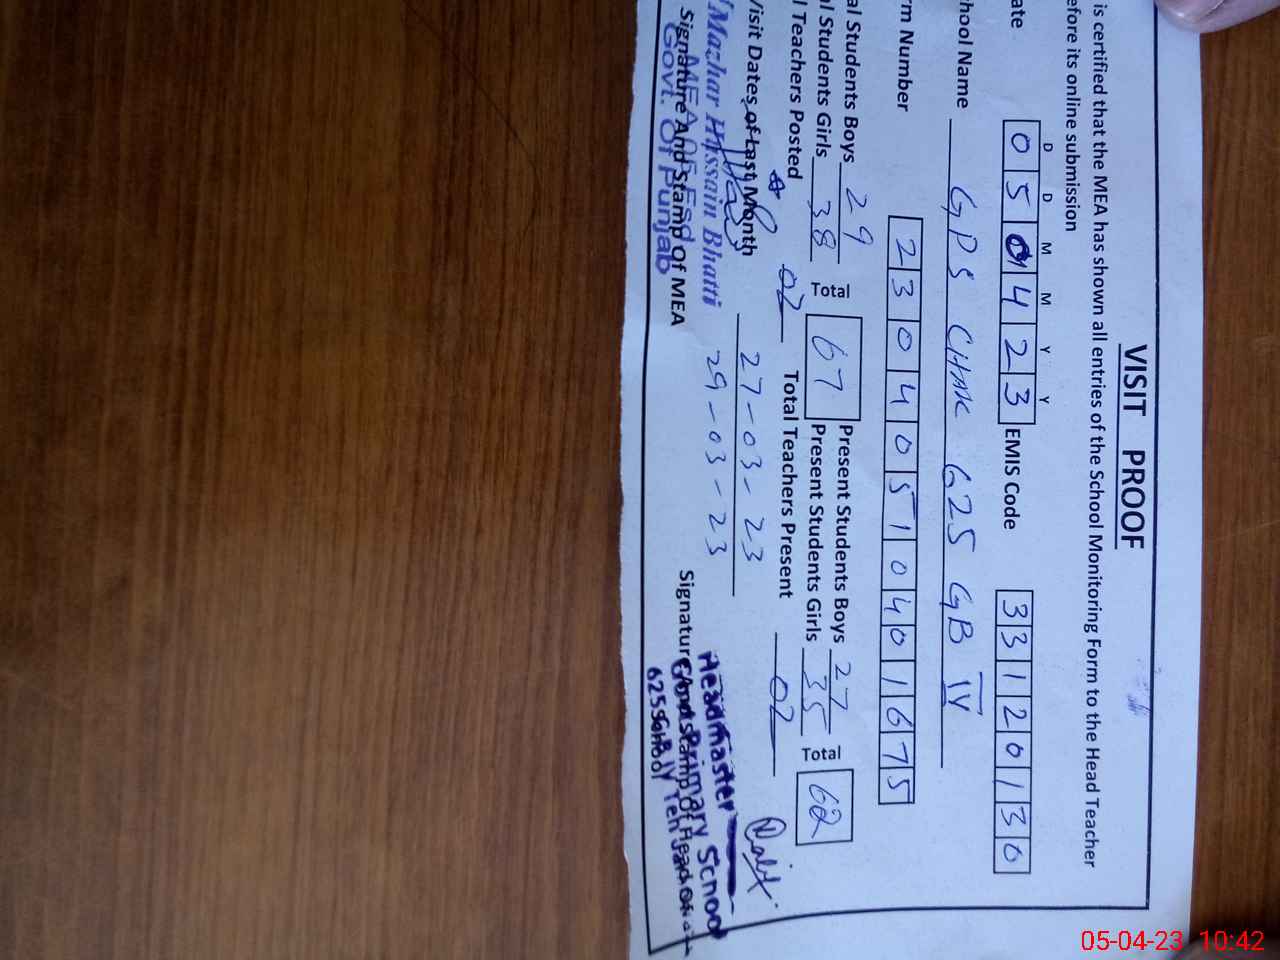 VISIT PROOF
is certified that the MEA has shown all entries of the School Monitoring Form to the Head Teacher
efore its online submission
D D M M Y Y
ate 0 5 0 4 2 3 EMIS Code 3 3 1 2 0 1 3 0
hool Name GPS CHAK 625 GB IV
rm Number 2 3 0 4 0 5 1 0 4 0 1 6 7 5
al Students Boys 29 Total 67 Present Students Boys 27 Total 62
al Students Girls 38 Present Students Girls 35
l Teachers Posted 02 Total Teachers Present 02
Visit Dates of Last Month 27-03-23
29-03-23
Mazhar Hussain Bhatti
Signature And Stamp Of MEA
Govt. Of Punjab
Headmaster
Govt. Primary School
625 G.B IV Teh
05-04-23 10:42